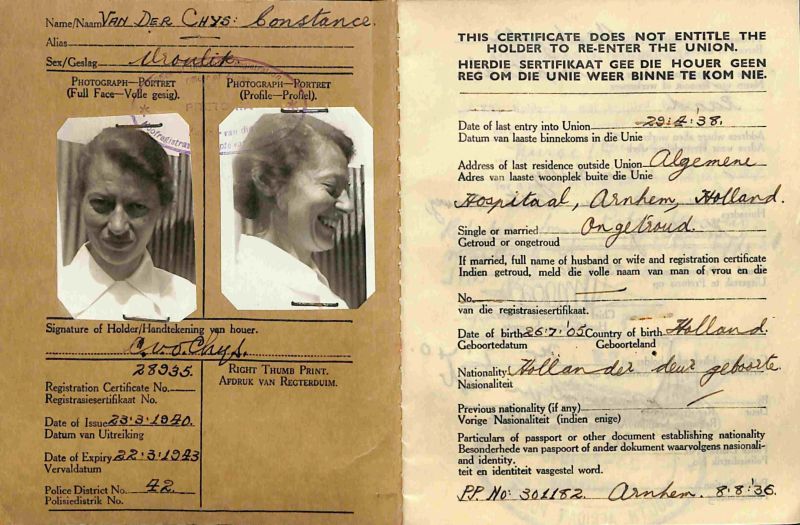 Name/Naam VAN DER CHYS: Constance.
Alias
Sex/Geslag Vroulik.
PHOTOGRAPH—PORTRET
(Full Face—Volle gesig).
PHOTOGRAPH—PORTRET
(Profile—Profiel).
Signature of Holder/Handtekening van houer.
C. v. d. Chys.
28935.
Registration Certificate No.
Registrasiesertifikaat No.
Date of Issue 23·3·1940.
Datum van Uitreiking
Date of Expiry 22·3·1943
Vervaldatum
Police District No. 42.
Polisiedistrik No.
RIGHT THUMB PRINT.
AFDRUK VAN REGTERDUIM.
THIS CERTIFICATE DOES NOT ENTITLE THE
HOLDER TO RE-ENTER THE UNION.
HIERDIE SERTIFIKAAT GEE DIE HOUER GEEN
REG OM DIE UNIE WEER BINNE TE KOM NIE.
Date of last entry into Union 29·4·'38.
Datum van laaste binnekoms in die Unie
Address of last residence outside Union Algemene
Adres van laaste woonplek buite die Unie
Hospitaal, Arnhem, Holland.
Single or married Ongetroud.
Getroud or ongetroud
If married, full name of husband or wife and registration certificate
Indien getroud, meld die volle naam van man of vrou en die
No.
van die registrasiesertifikaat.
Date of birth 26·7·'05 Country of birth Holland.
Geboortedatum Geboorteland
Nationality Hollander deur geboorte.
Nasionaliteit
Previous nationality (if any)
Vorige Nasionaliteit (indien enige)
Particulars of passport or other document establishing nationality
Besonderhede van paspoort of ander dokument waarvolgens nasionali-
and identity.
teit en identiteit vasgestel word.
P.P. No: 301182. Arnhem. 8·8·'36.